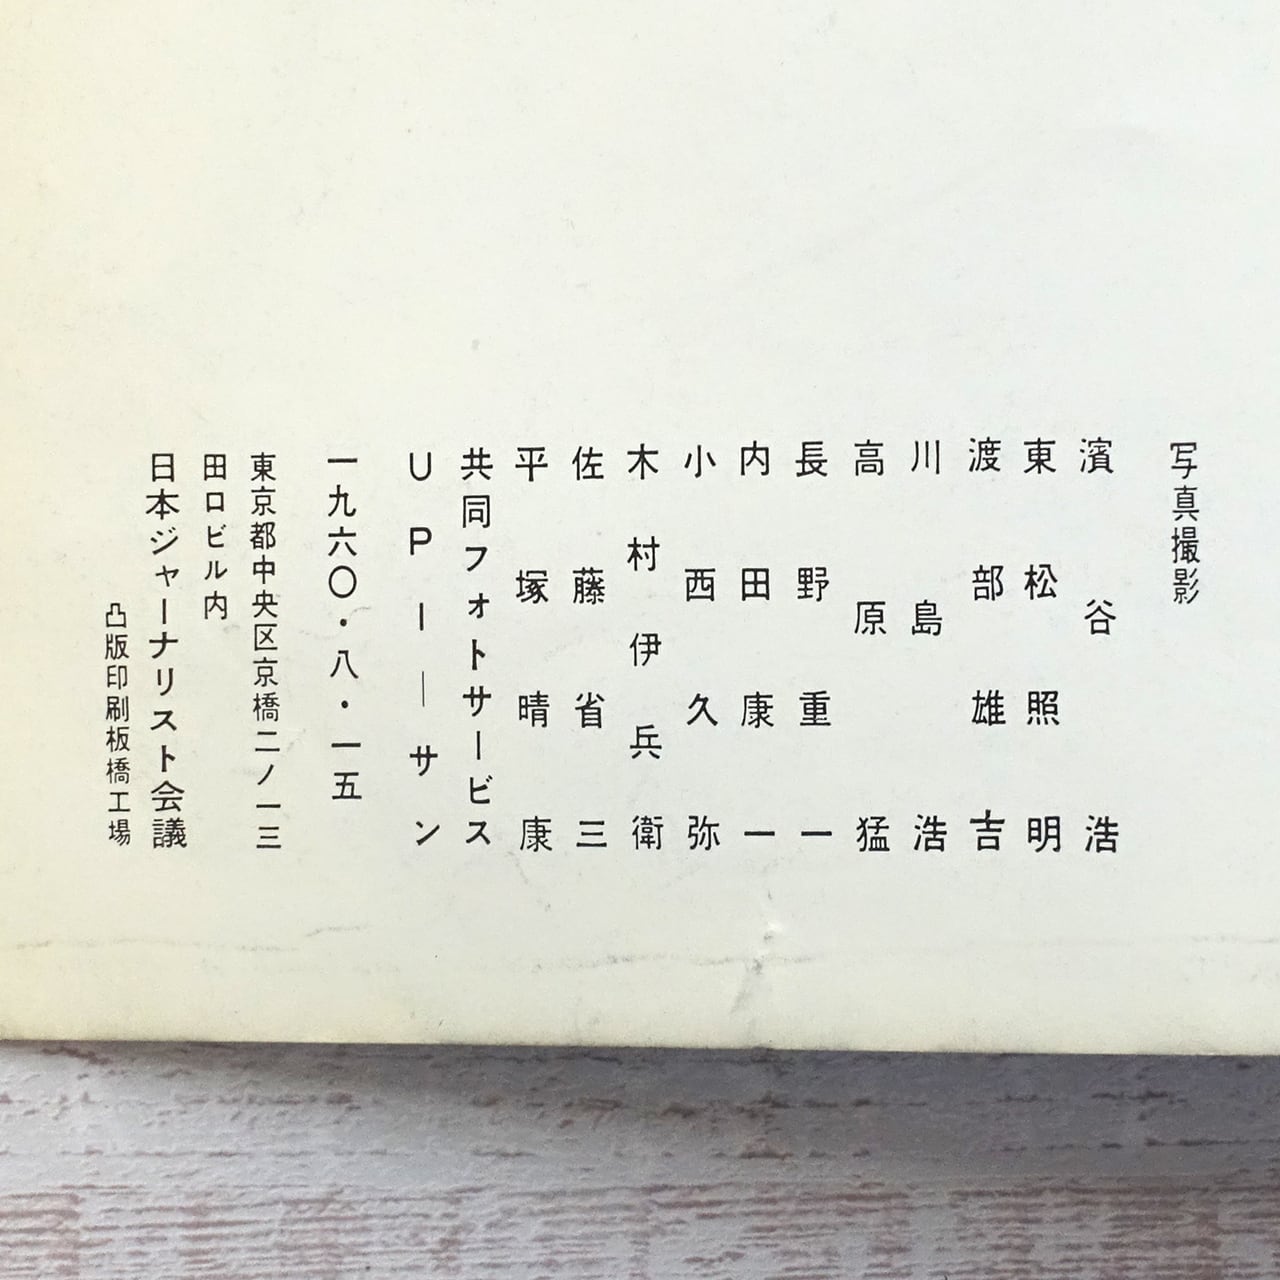 写真撮影
濱谷浩
東松照明
渡部雄吉
川島浩
高原猛
長野重一
内田康一
小西久弥
木村伊兵衛
佐藤省三
平塚晴康
共同フォトサービス
UPI―サン
一九六〇・八・一五
東京都中央区京橋二ノ一三
田口ビル内
日本ジャーナリスト会議
凸版印刷板橋工場